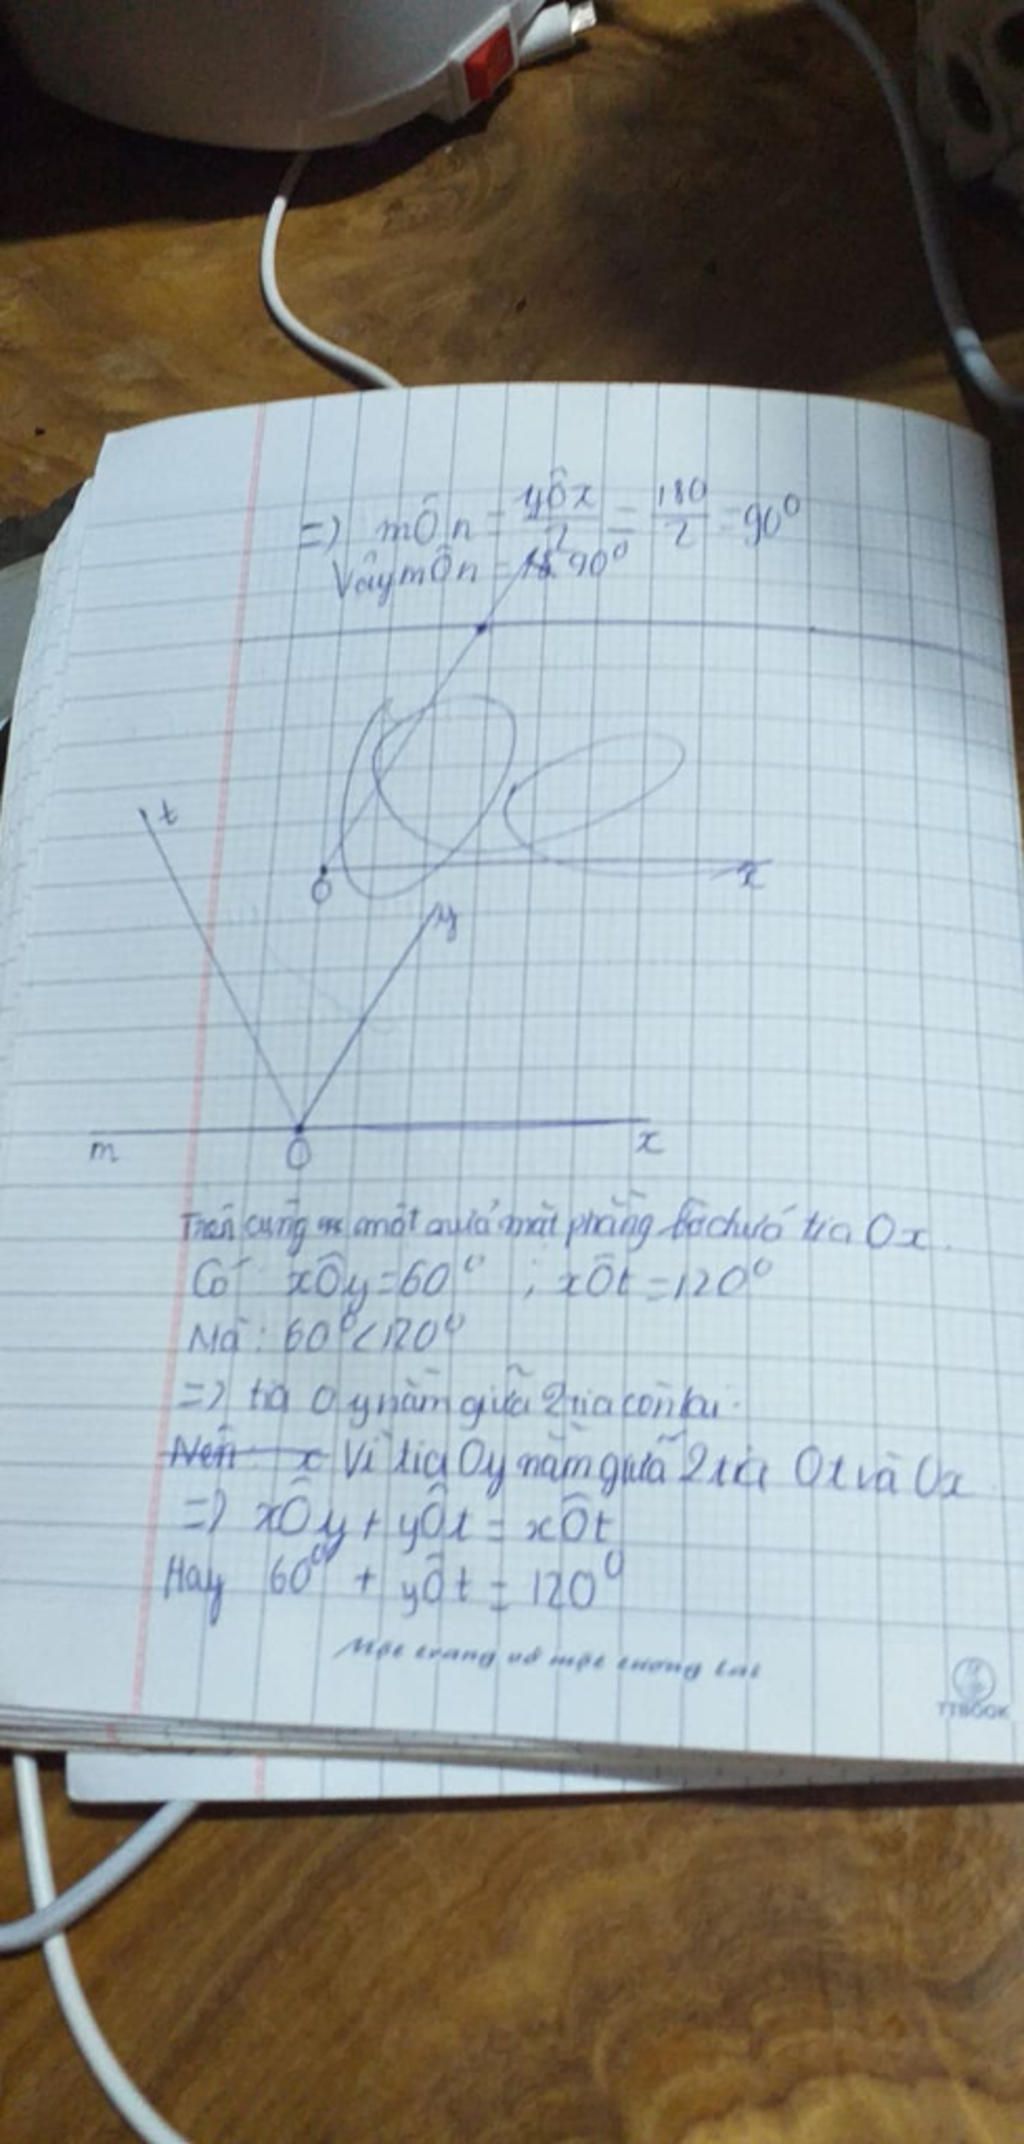 => mÔn = yÔx/2 = 180/2 = 90⁰
Vậy mÔn = 90⁰
t
O
x
y
m
O
x
Trên cùng một nửa mặt phẳng bờ chứa tia Ox.
Có xÔy = 60⁰ ; xÔt = 120⁰
Mà : 60⁰ < 120⁰
=> tia Oy nằm giữa 2 tia còn lại.
Nên x Vì tia Oy nằm giữa 2 tia Ot và Ox
=> xÔy + yÔt = xÔt
Hay 60⁰ + yÔt = 120⁰
Một trang vở một tương lai
TTBOOK